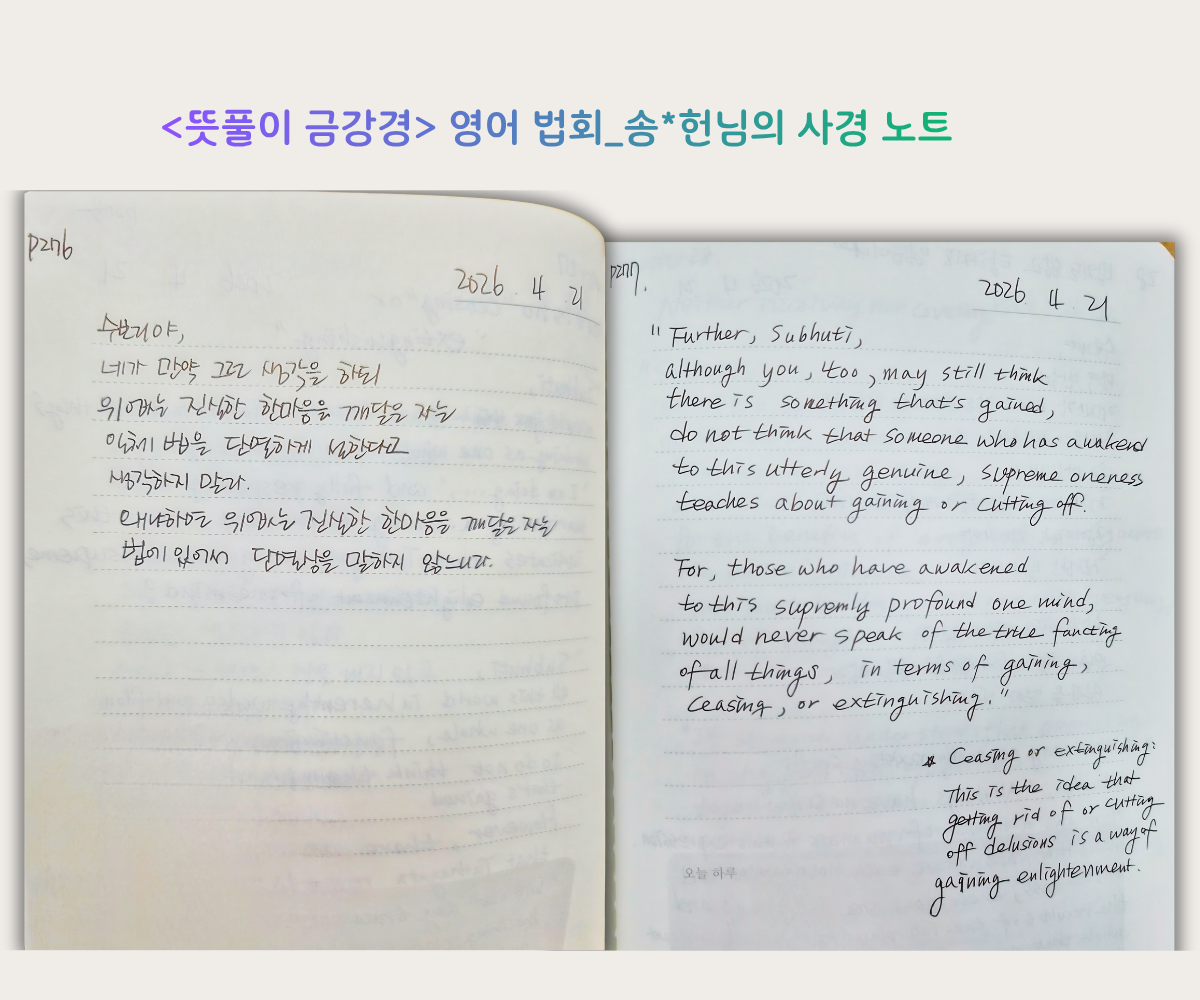 <뜻풀이 금강경> 영어 법회_송*헌님의 사경 노트
p276
2026. 4. 21
수보리야,
네가 만약 그런 생각을 하되
위없는 진실한 한마음을 깨달은 자는
일체 법을 단멸하게 설한다고
생각하지 말라.
왜냐하면 위없는 진실한 한마음을 깨달은 자는
법에 있어서 단멸상을 말하지 않느니라.
p277.
2026. 4. 21
" Further, Subhuti,
although you, too, may still think
there is something that's gained,
do not think that someone who has awakend
to this utterly genuine, supreme oneness
teaches about gaining or cutting off.
For, those who have awakened
to this supremly profound one mind,
would never speak of the true functing
of all things, in terms of gaining,
ceasing, or extinguishing."
* Ceasing or extinguishing:
This is the idea that
getting rid of or cutting
off delusions is a way of
gaining enlightenment.
오늘 하루